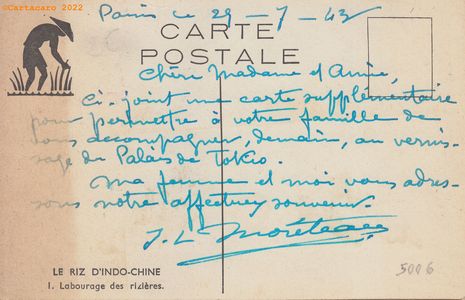 ©Cartacaro 2022
Paris le 29-7-43
CARTE
POSTALE
Chère Madame et Amie,
Ci-joint une carte supplémentaire
pour permettre à votre famille de
vous accompagner, demain, au vernis-
sage du Palais de Tokio.
Ma femme et moi vous adres-
sons notre affectueux souvenir.
LE RIZ D'INDO-CHINE
1. Labourage des rizières.
5006